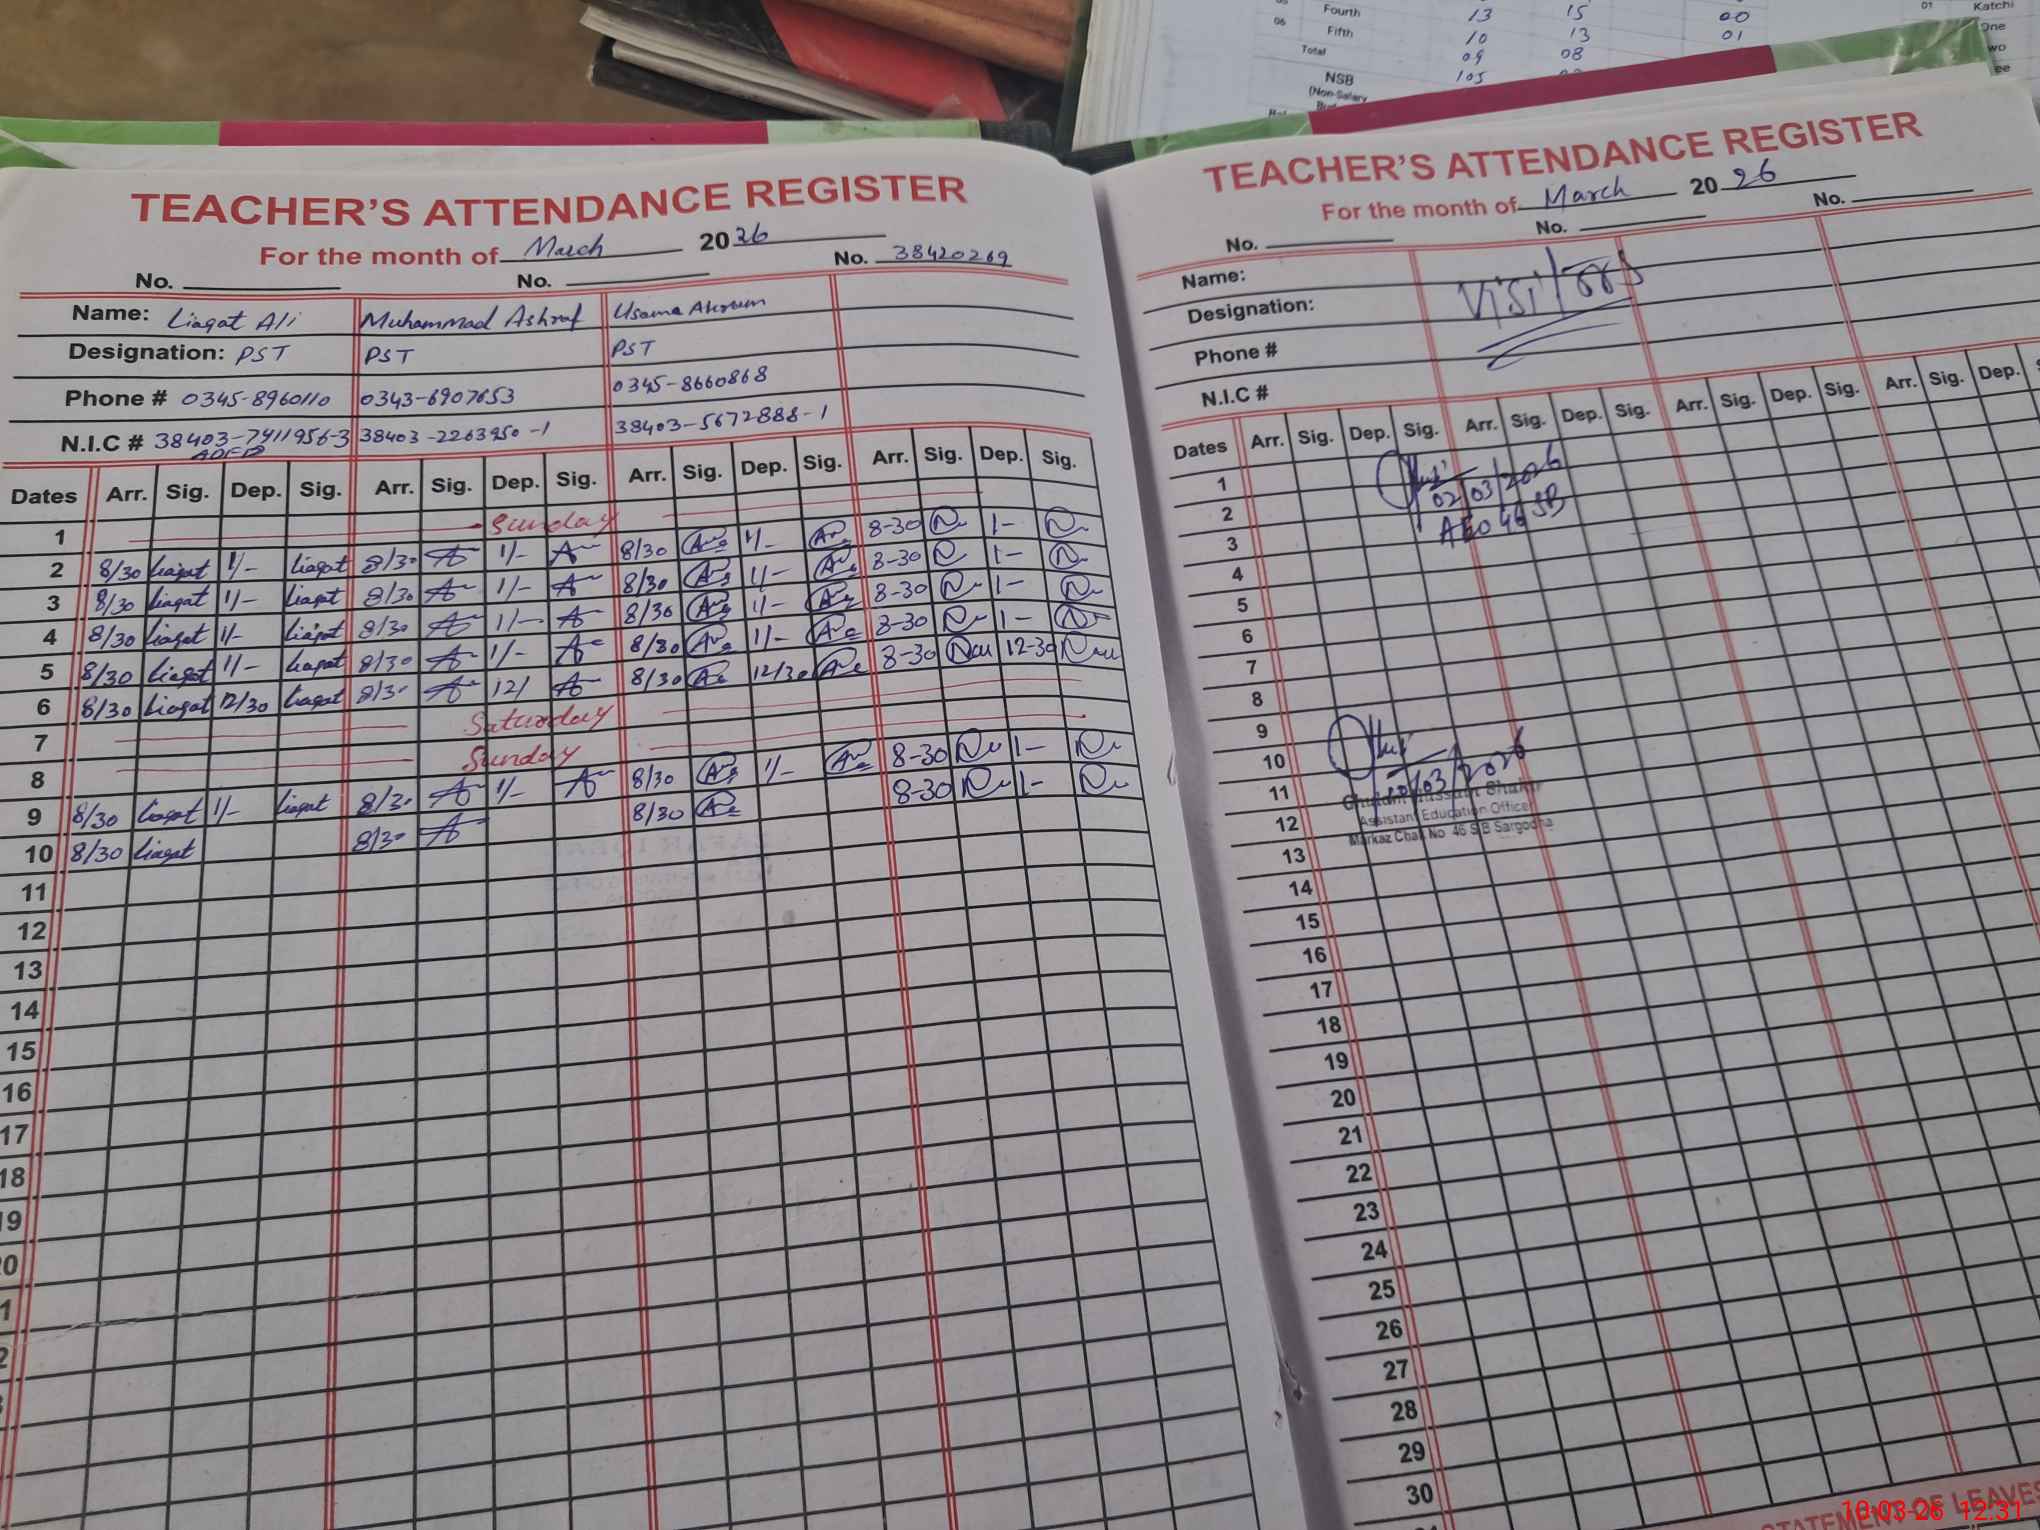 Fourth 13 15 00
06 Fifth 10 13 01
Total 09 08
NSB 105
(Non-Salary
01 Katchi
One
TEACHER'S ATTENDANCE REGISTER
For the month of March 2026
No. No. No. 38420269
Name: Liaqat Ali Muhammad Ashraf Usama Akram
Designation: PST PST PST
Phone # 0345-8960110 0343-6907653 0345-8660868
N.I.C # 38403-7411956-3 38403-2263950-1 38403-5672888-1
Dates Arr. Sig. Dep. Sig. Arr. Sig. Dep. Sig. Arr. Sig. Dep. Sig. Arr. Sig. Dep. Sig.
1 Sunday
2 8/30 Liaqat 1/- Liaqat 8/30 1/- 8/30 1/- 8-30 1-
3 8/30 Liaqat 1/- Liaqat 8/30 1/- 8/30 1/- 8-30 1-
4 8/30 Liaqat 1/- Liaqat 8/30 1/- 8/30 1/- 8-30 1-
5 8/30 Liaqat 1/- Liaqat 8/30 1/- 8/30 1/- 8-30 1-
6 8/30 Liaqat 12/30 Liaqat 8/30 12/ 8/30 12/30 8-30 12-30
7 Saturday
8 Sunday
9 8/30 Liaqat 1/- Liaqat 8/30 1/- 8/30 1/- 8-30 1-
10 8/30 Liaqat 8/30 8/30 8-30 1-
11
12
13
14
15
16
17
18
19
TEACHER'S ATTENDANCE REGISTER
For the month of March 2026
No. No. No.
Name: Visitors
Designation:
Phone #
N.I.C #
Dates Arr. Sig. Dep. Sig. Arr. Sig. Dep. Sig. Arr. Sig. Dep. Sig. Arr. Sig. Dep.
1
2 02/03/2026
3 AEO 46 SB
4
5
6
7
8
9
10
11 10/03/2026
Ghulam Hassan Shakir
12 Assistant Education Officer
Markaz Chak No 46 SB Sargodha
13
14
15
16
17
18
19
20
21
22
23
24
25
26
27
28
29
30
STATEMENT OF LEAVES
10-03-26 12:31